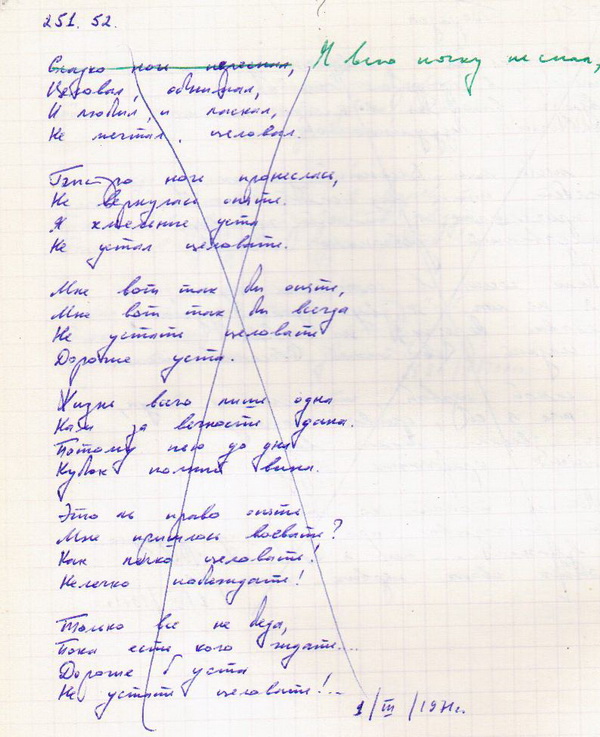 251. 52.
Сладко ночь переспал, Я всю ночку не спал,
Целовал, обнимал,
И любил, и ласкал,
Не мечтал, целовал.
Быстро ночь пронеслась,
Не вернулась опять.
Я хмельные уста
Не устал целовать.
Мне вот так бы опять,
Мне вот так бы всегда
Не устать целовать
Дорогие уста.
Жизнь всего лишь одна
Нам за вечность дана.
Потому пью до дна
Кубок полный вина.
Это ль право опять
Мне пришлось воевать?
Как легко целовать!
Нелегко побеждать!
Только все не беда,
Пока есть кого ждать....
Дорогие б уста
Не устать целовать!..
1/III/1971г.